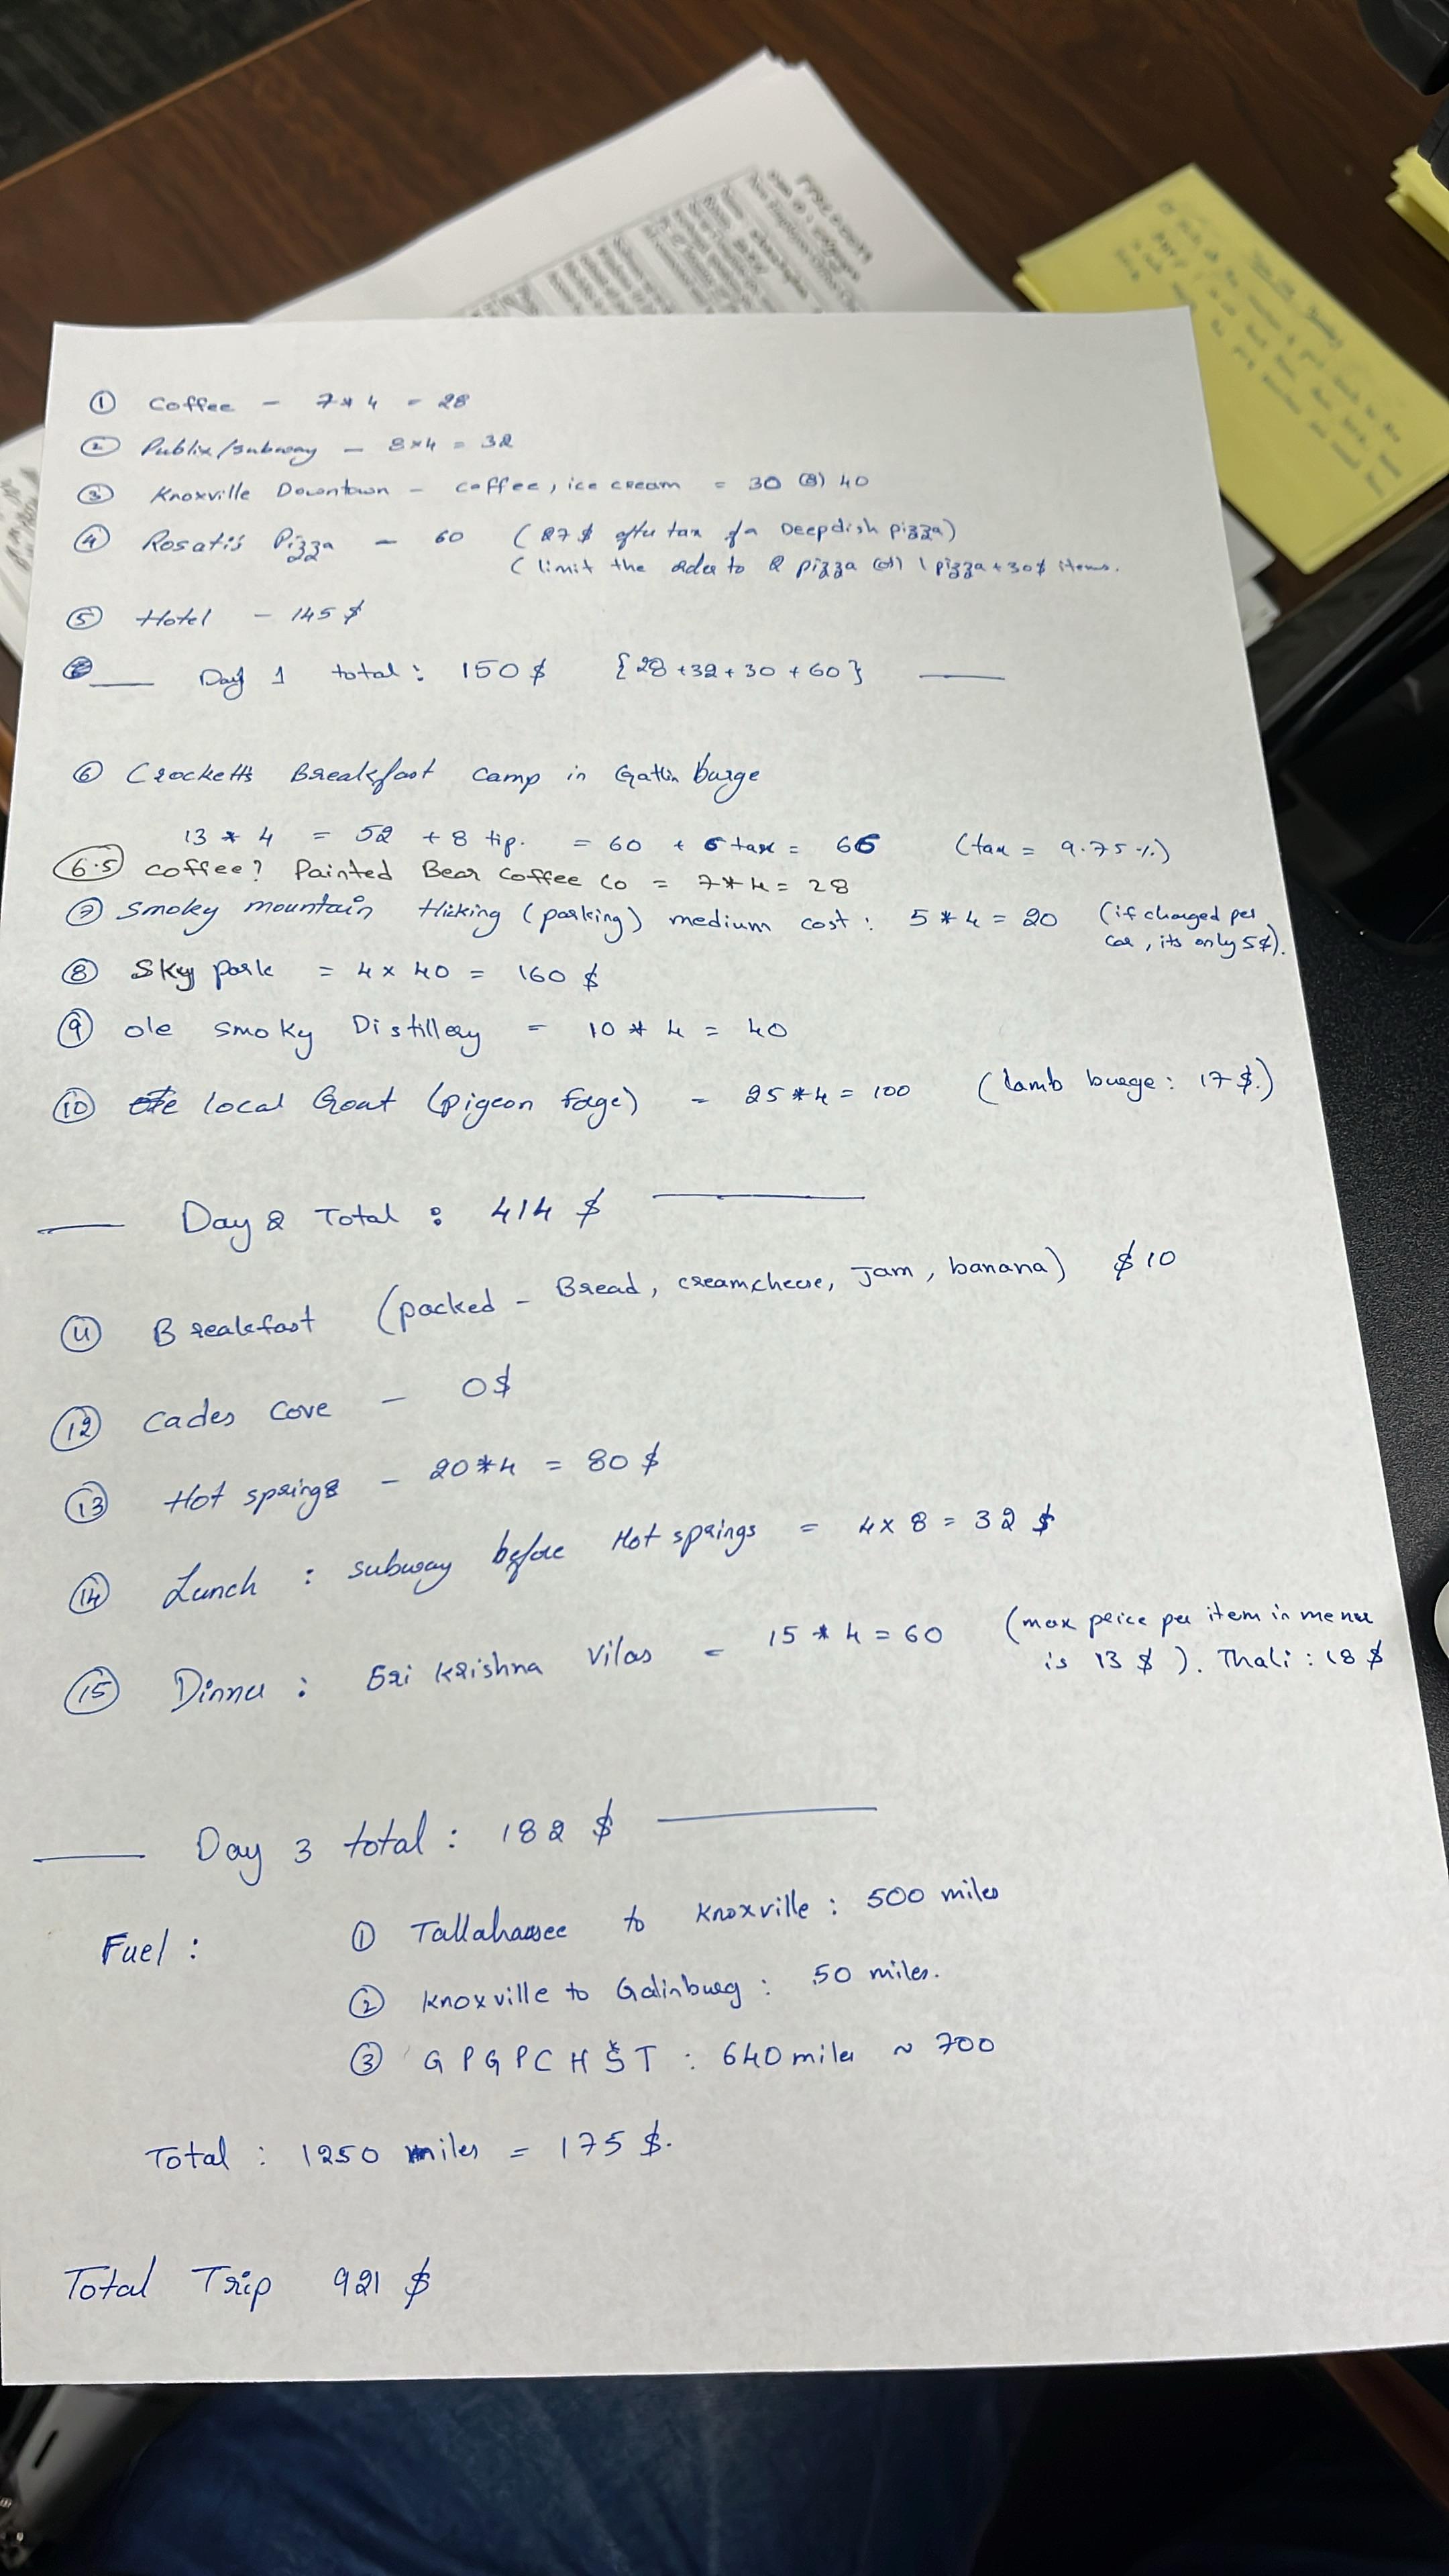 ① Coffee - 7*4 = 28
② Publix/subway - 8×4 = 32
③ Knoxville Downtown - coffee, ice cream = 30 (or) 40
④ Rosati's Pizza - 60 (27$ after tax of a Deepdish pizza)
(limit the order to 2 pizza (or) 1 pizza + 30$ items.
⑤ Hotel - 145 $
Day 1 total : 150 $ {28+32+30+60}
⑥ Crocketts Breakfast camp in Gatlin burge
13 * 4 = 52 + 8 tip. = 60 + 6 tax = 66 (tax = 9.75%)
6.5 coffee? Painted Bear Coffee Co = 7*4 = 28
⑦ Smoky mountain Hicking (parking) medium cost : 5 * 4 = 20 (if charged per
car, its only 5$).
⑧ Sky park = 4 × 40 = 160 $
⑨ ole smoky Distillery = 10 * 4 = 40
⑩ local Goat (pigeon foge) = 25*4 = 100 (lamb burge : 17 $.)
Day 2 Total : 414 $
⑪ Breakfast (packed - Bread, creamcheese, Jam, banana) $ 10
⑫ Cades Cove - 0$
⑬ Hot springs - 20*4 = 80 $
⑭ Lunch : subway before Hot springs = 4×8 = 32 $
⑮ Dinner : Sri Krishna Vilas = 15 * 4 = 60 (max price per item in menu
is 13 $). Thali : 18 $
Day 3 total : 182 $
Fuel : ① Tallahassee to Knoxville : 500 miles
② Knoxville to Galinburg : 50 miles.
③ G P G P C H S T : 640 miles ~ 700
Total : 1250 miles = 175 $.
Total Trip 921 $